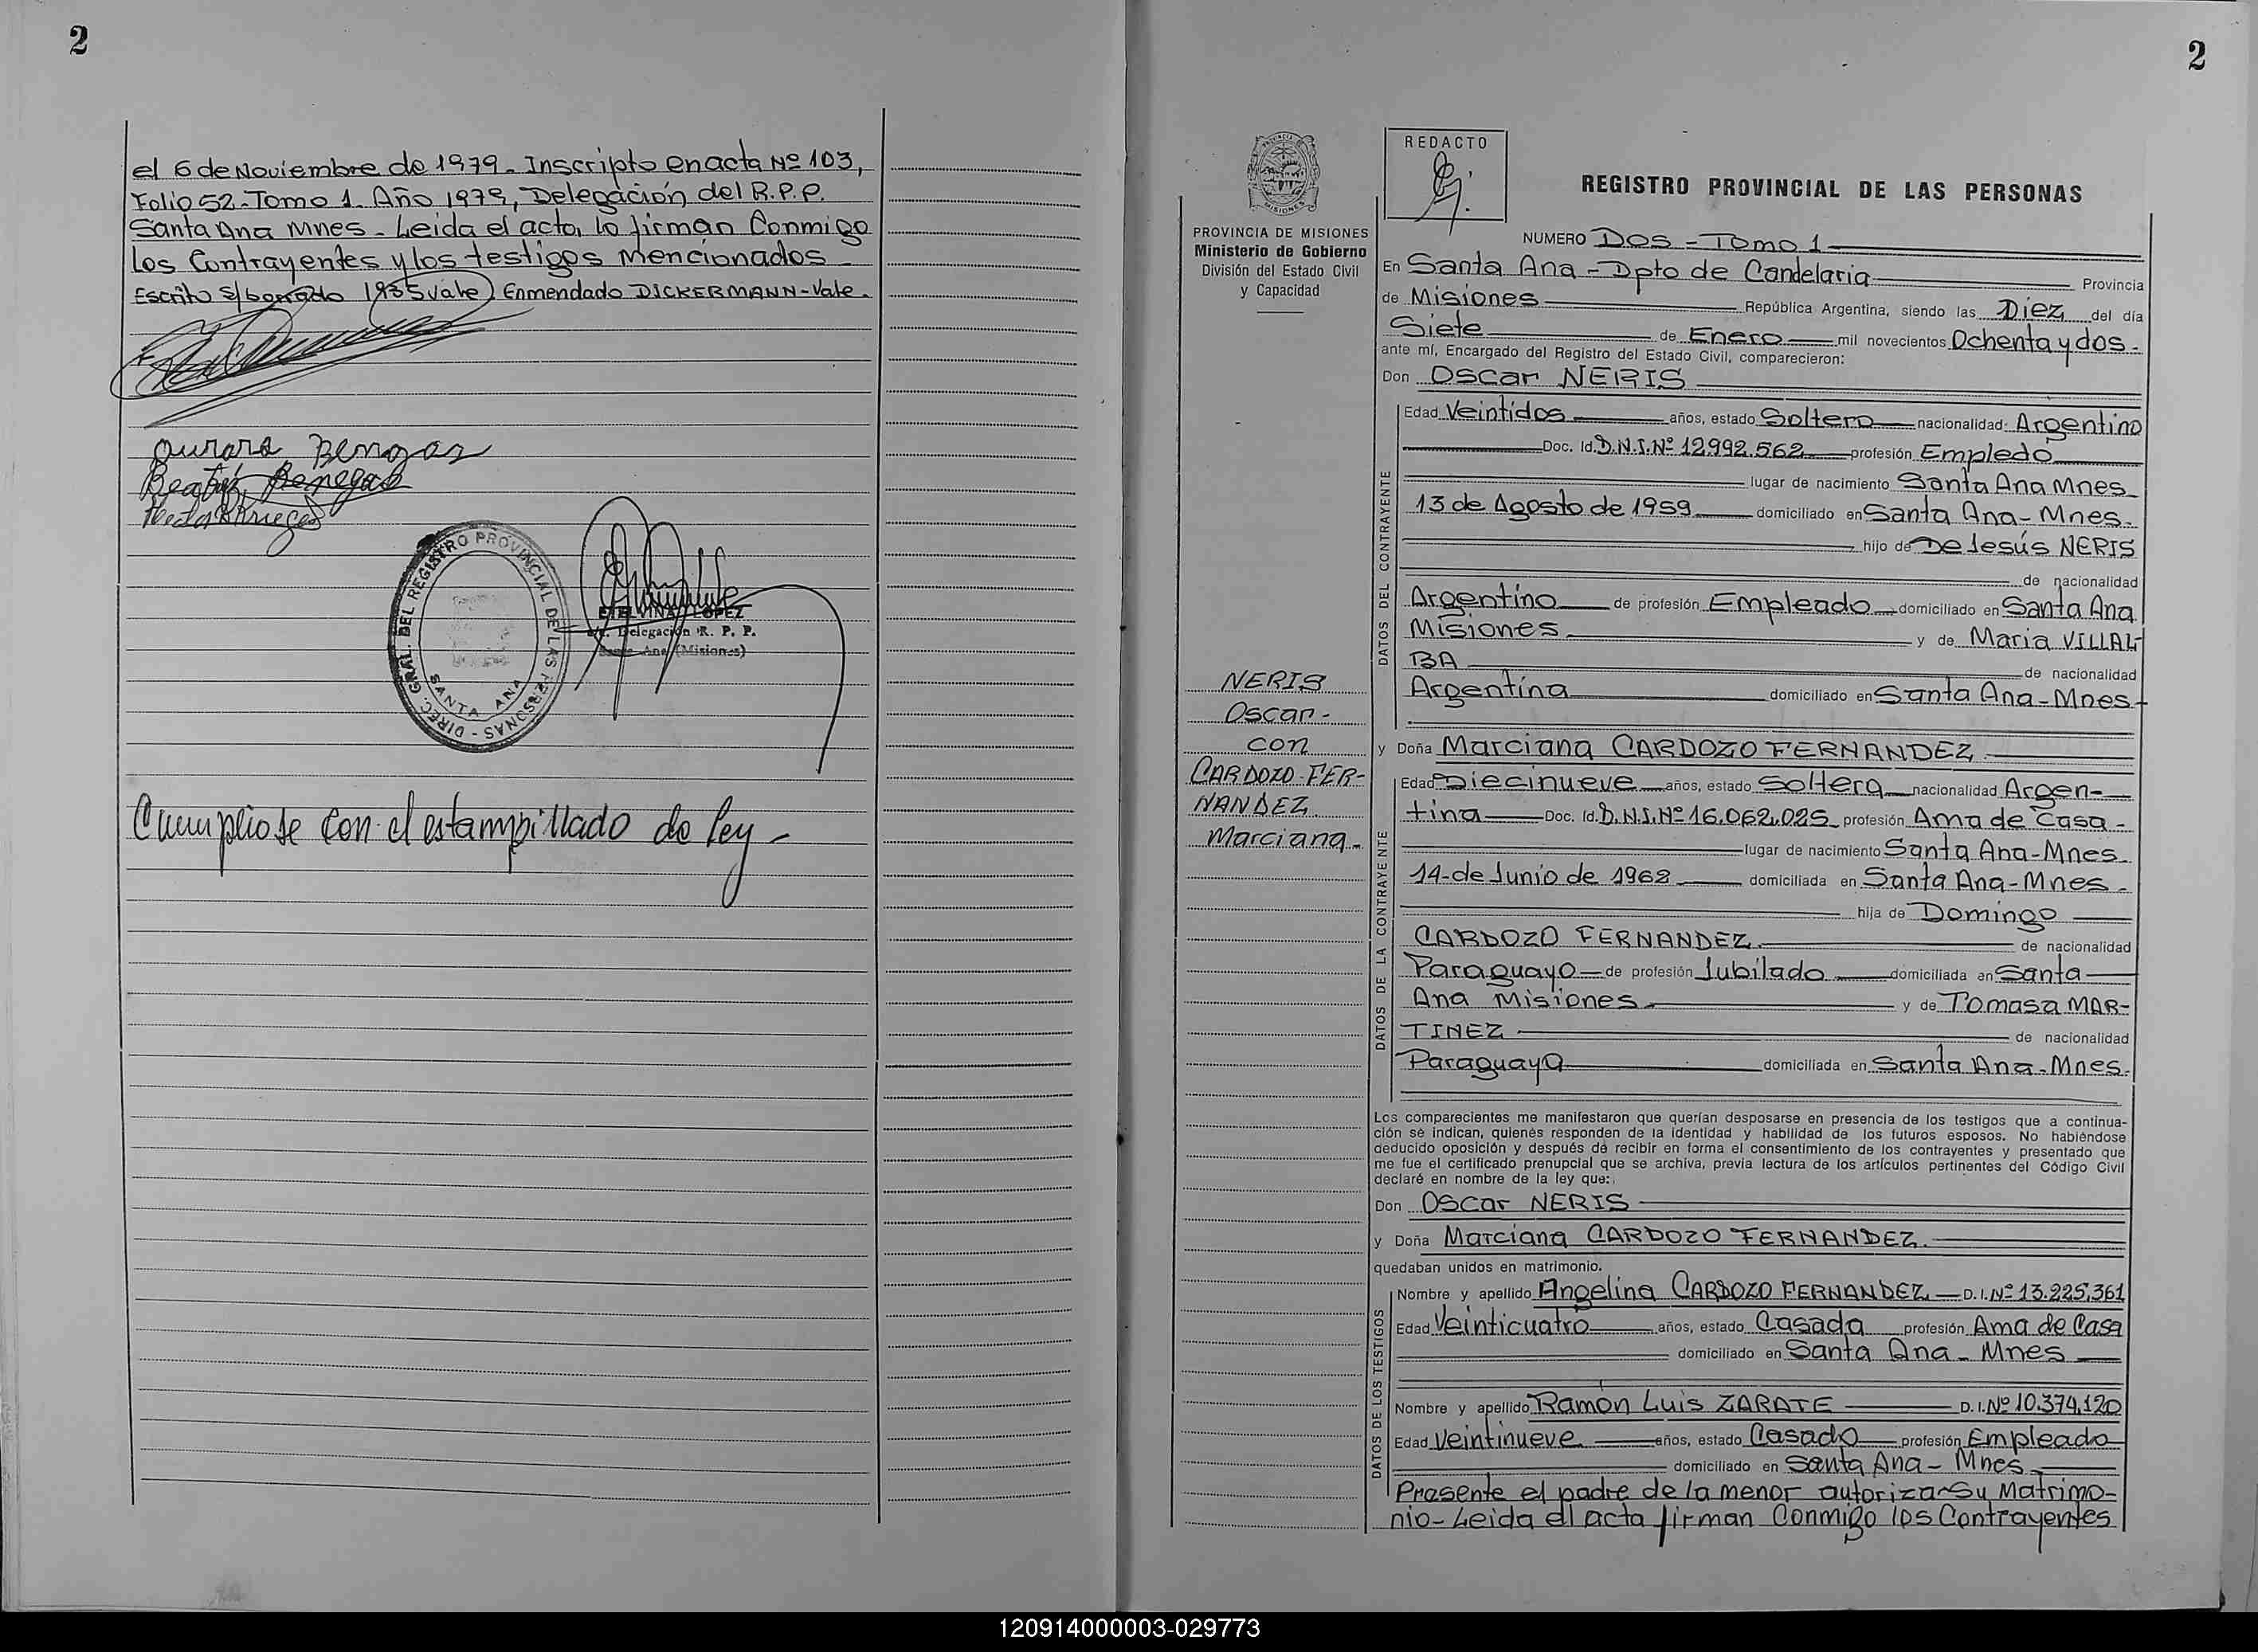 2
el 6 de Noviembre de 1979. Inscripto en acta Nº 103,
Folio 52-Tomo 1. Año 1979, Delegación del R.P.P.
Santa Ana Mnes - Leida el acta, lo firman Conmigo
los Contrayentes y los testigos Mencionados
Escrito s/borrado 1935 vale) Enmendado DICKERMANN-Vale.
Beatriz Benegas
DIREC. GRAL. DEL REGISTRO PROVINCIAL DE LAS PERSONAS -
SANTA ANA
LOPEZ
Delegación R. P. P.
Santa Ana (Misiones)
Cumpliose con el estampillado de ley -
2
PROVINCIA DE MISIONES
Ministerio de Gobierno
División del Estado Civil
y Capacidad
NERIS
Oscar -
con
CARDOZO FER-
NANDEZ
Marciana -
REDACTO
REGISTRO PROVINCIAL DE LAS PERSONAS
NUMERO DOS - Tomo 1
En Santa Ana - Dpto de Candelaria Provincia
de Misiones República Argentina, siendo las Diez del día
Siete de Enero mil novecientos Ochenta y dos -
ante mí, Encargado del Registro del Estado Civil, comparecieron:
Don Oscar NERIS
DATOS DEL CONTRAYENTE
Edad Veintidos años, estado Soltero nacionalidad: Argentino
Doc. Id. D.N.I. Nº 12.992.562 profesión Empledo
lugar de nacimiento Santa Ana Mnes
13 de Agosto de 1959 domiciliado en Santa Ana - Mnes.
hijo de De Jesús NERIS
de nacionalidad
Argentino de profesión Empleado domiciliado en Santa Ana
Misiones y de Maria VILLAL-
BA de nacionalidad
Argentina domiciliado en Santa Ana - Mnes
y Doña Marciana CARDOZO FERNANDEZ
DATOS DE LA CONTRAYENTE
Edad Diecinueve años, estado Soltera nacionalidad Argen-
tina Doc. Id. D.N.I. Nº 16.062.025 profesión Ama de Casa -
lugar de nacimiento Santa Ana - Mnes
14 - de Junio de 1962 domiciliada en Santa Ana - Mnes -
hija de Domingo
CARDOZO FERNANDEZ de nacionalidad
Paraguayo de profesión Jubilado domiciliada en Santa
Ana Misiones y de Tomasa MAR-
TINEZ de nacionalidad
Paraguaya domiciliada en Santa Ana - Mnes.
Los comparecientes me manifestaron que querían desposarse en presencia de los testigos que a continua-
ción se indican, quienes responden de la identidad y habilidad de los futuros esposos. No habiéndose
deducido oposición y después de recibir en forma el consentimiento de los contrayentes y presentado que
me fue el certificado prenupcial que se archiva, previa lectura de los artículos pertinentes del Código Civil
declaré en nombre de la ley que:
Don Oscar NERIS
y Doña Marciana CARDOZO FERNANDEZ.
quedaban unidos en matrimonio.
DATOS DE LOS TESTIGOS
Nombre y apellido Angelina CARDOZO FERNANDEZ D. I. Nº 13.225.361
Edad Veinticuatro años, estado Casada profesión Ama de Casa
domiciliado en Santa Ana - Mnes
Nombre y apellido Ramón Luis ZARATE D. I. Nº 10.374.120
Edad Veintinueve años, estado Casado profesión Empleado
domiciliado en Santa Ana - Mnes
Presente el padre de la menor autoriza su Matrimo-
nio - Leida el acta firman Conmigo los Contrayentes
120914000003-029773